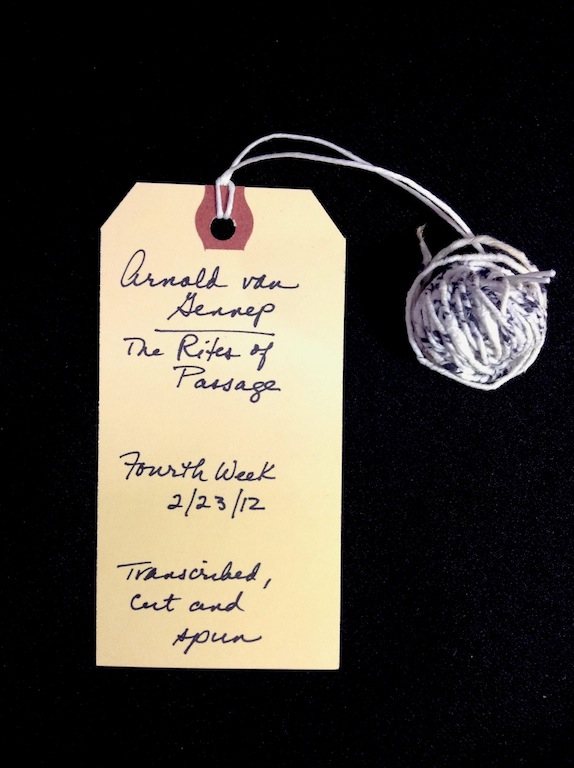 Arnold van
Gennep
The Rites of
Passage
Fourth Week
2/23/12
Transcribed,
Cut and
spun